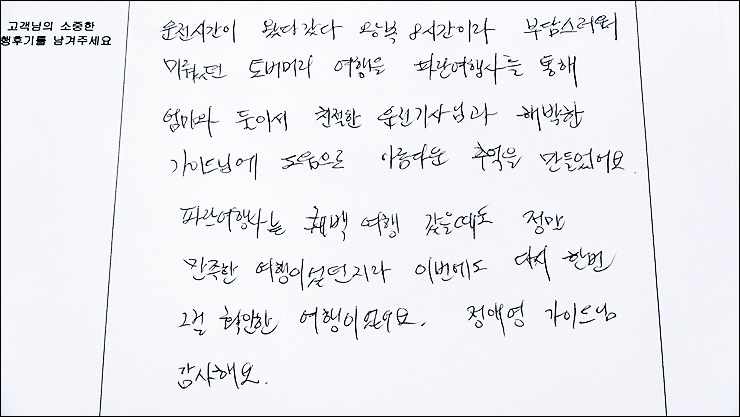 고객님의 소중한
행후기를 남겨주세요
운전시간이 왔다갔다 왕복 8시간이라 부담스러워
미뤘던 토버머리 여행을 파란여행사를 통해
엄마와 둘이서 친절한 운전기사님과 해박한
가이드님에 도움으로 아름다운 추억을 만들었어요.
파란여행사는 퀘백 여행 갔을때도 정말
만족한 여행이었던지라 이번에도 다시 한번
그걸 확인한 여행이었어요. 정애영 가이드님
감사해요.